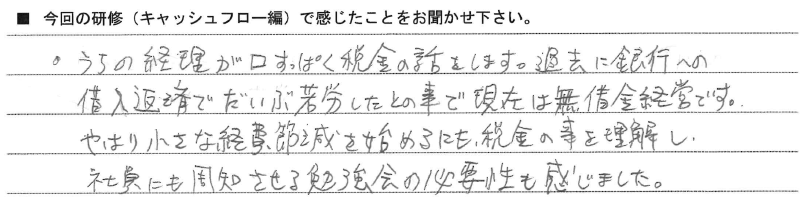 ■ 今回の研修（キャッシュフロー編）で感じたことをお聞かせ下さい。
・うちの経理が口すっぱく税金の話をします。過去に銀行への
借入返済でだいぶ苦労したとの事で現在は無借金経営です。
やはり小さな経費節減を始めるにも、税金の事を理解し、
社員にも周知させる勉強会の必要性も感じました。